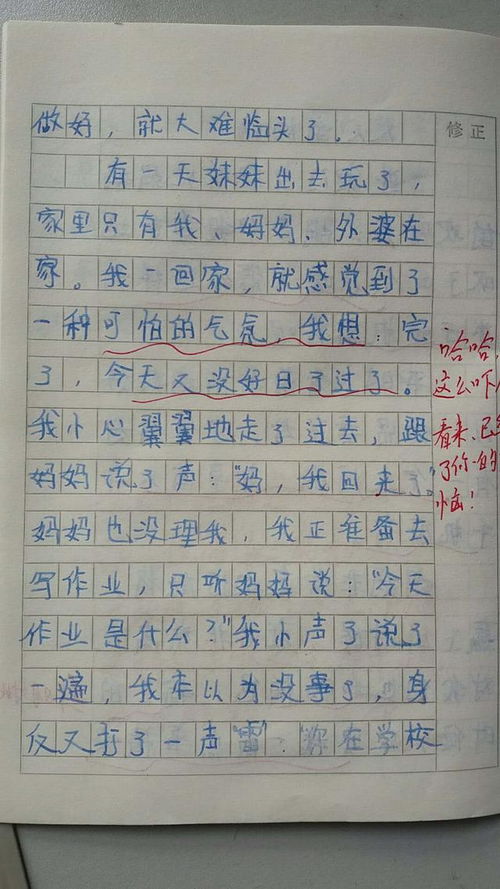 做好，就大难临头了。
修正
有一天妹妹出去玩了，
家里只有我、妈妈、外婆在
家。我一回家，就感觉到了
一种可怕的气氛，我想：完
了，今天又没好日子过了。
我小心翼翼地走了过去，跟
妈妈说了声：“妈，我回来了。”
妈妈也没理我，我正准备去
写作业，只听妈妈说：“今天
作业是什么？”我小声了说了
一遍，我本以为没事了，身
仅又打了一声“雷”：“你在学校
哈哈，
这么吓人
看来，已
了你的